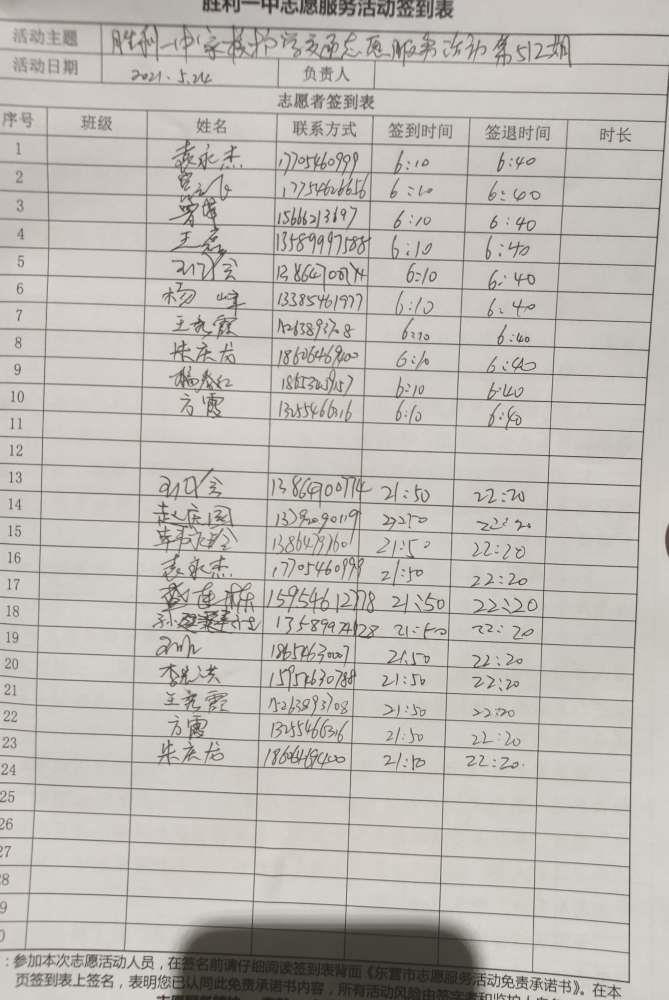 胜利一中志愿服务活动签到表
活动主题 胜利一中家校护学交通志愿服务活动第512期
活动日期 2021.5.24 负责人
志愿者签到表
序号 班级 姓名 联系方式 签到时间 签退时间 时长
1 袁永杰 17705460999 6:10 6:40
2 17754626656 6:10 6:40
3 15666213697 6:10 6:40
4 王磊 13589997588 6:10 6:40
5 13864700774 6:10 6:40
6 杨峰 13385461977 6:10 6:40
7 王彩霞 15263893708 6:10 6:40
8 朱庆龙 18606469400 6:10 6:40
9 6:10 6:40
10 方霞 13255466316 6:10 6:40
11
12
13 13864700774 21:50 22:20
14 赵庆国 22:20
15 21:50 22:20
16 袁永杰 17705460999 21:50 22:20
17 15954612778 21:50 22:20
18 13589974128 21:50 22:20
19 18654630007 21:50 22:20
20 李先洪 15954630788 21:50 22:20
21 王彩霞 15263893708 21:50 22:20
22 方霞 13255466316 21:50 22:20
23 朱庆龙 18606469400 21:50 22:20
24
25
26
27
28
9
0
：参加本次志愿活动人员，在签名前请仔细阅读签到表背面《东营市志愿服务活动免责承诺书》。在本
页签到表上签名，表明您已认同此免责承诺书内容，所有活动风险由签